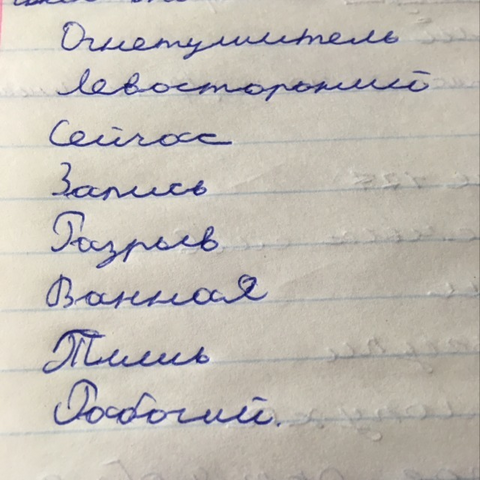 Огнетушитель
Левосторонний
Сейчас
Запись
Разрыв
Ванная
Тишь
Рабочий.